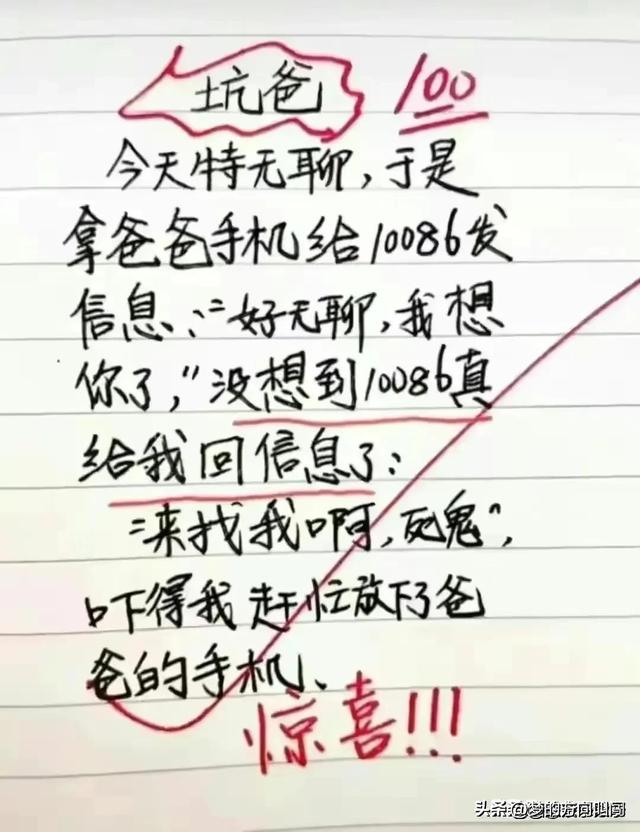 坑爸 100
今天特无聊,于是
拿爸爸手机给10086发
信息:"好无聊,我想
你了,"没想到10086真
给我回信息了:
"来找我啊,死鬼",
吓得我赶忙放下了爸
爸的手机、
惊喜!!!
头条